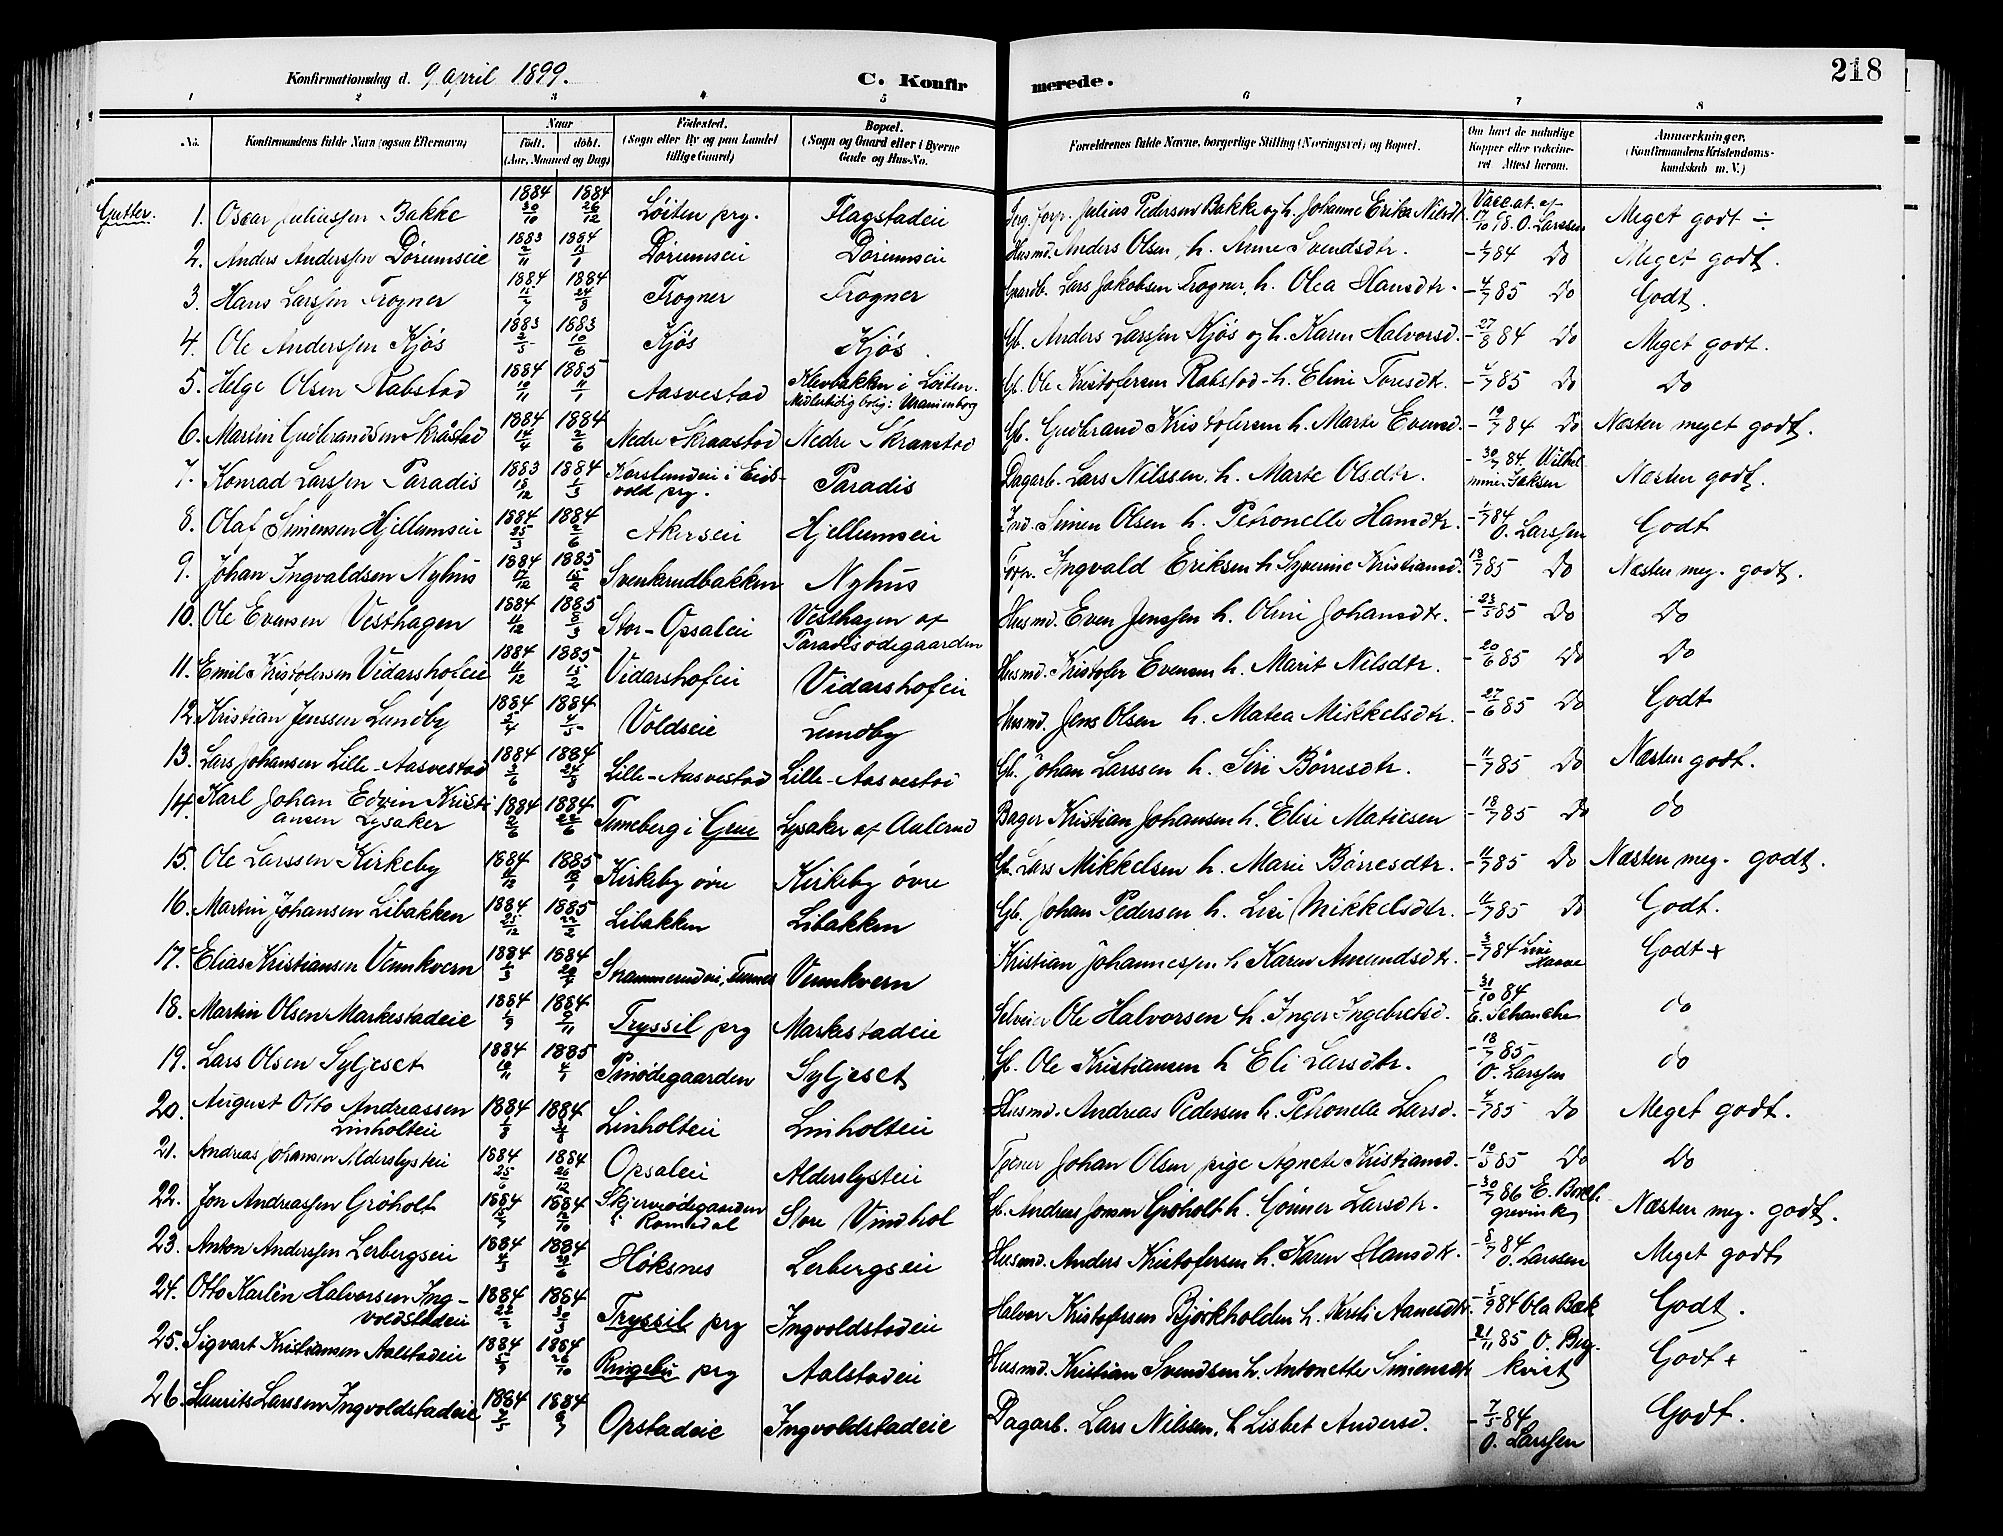 218
Konfirmationsdag d. 9 april 1899.
C. Konfirmerede.
1 2 3 4 5 6 7 8
No.
Konfirmandens fulde Navn (ogsaa Efternavn)
Naar
født. døbt.
(Aar, Maaned og Dag)
Fødested.
(Sogn eller By og paa Landet
tillige Gaard)
Bopæl.
(Sogn og Gaard eller i Byerne
Gade og Hus-No.
Forældrenes fulde Navne, borgerlige Stilling (Næringsvei) og Bopæl.
Om havt de naturlige
Kopper eller vakcine-
ret Attest herom.
Anmærkninger.
(Konfirmandens Kristendoms-
kundskab m. V.)
Gutter.
1. Oscar Juliussen Bakke 1884 30/10 1884 26/12 Løiten prg. Flagstadeie Julius Pedersen Bakke og h. Johanne Erika Nilsdt. Vacc.at. af 17/10 98. O. Larssen Meget godt ÷
2. Anders Anderssen Dørumseie 1883 2/11 1884 13/1 Dørumseie Dørumseie Husmd. Anders Olsen, h. Anne Svendsdtr. 84 Do Meget godt.
3. Hans Larssen Frogner 1884 1884 24/8 Frogner Frogner Gaardb. Lars Jakobsen Frogner, h. Olea Hansdtr. 4/7 85 Do Godt.
4. Ole Anderssen Kjøs 1883 2/5 1883 10/6 Kjøs Kjøs. Gb. Anders Larssen Kjøs og h. Karen Halvorsd. 27/8 84 Do Meget godt.
5. Helge Olsen Rabstad 1884 10/11 1885 11/1 Aasvestad Klevbakken i Løiten.
Midlertidig bolig: Uranienborg Gb. Ole Kristofersen Rabstad h. Eline Toresdt. 85 Do Do
6. Martin Gudbrandsen Skråstad 1884 14/4 1884 2/6 Nedre Skraastad Nedre Skraastad Gb. Gudbrand Kristofersen h. Marte Evensd. 19/7 84 Do Næsten meget godt.
7. Konrad Larssen Paradis 1883 13/12 1884 1/3 Korslundeie i Eids-
vold prg. Paradis Dagarb. Lars Nilssen, h. Marte Olsdtr. 30/7 84 Næsten godt.
8. Olaf Simensen Hjellumseie 1884 25/3 1884 2/6 Akerseie Hjellumseie Ind. Simen Olsen h. Petronelle Hansdtr. 84 O. Larssen Godt
9. Johan Ingvaldsen Nyhus 1884 17/12 1885 15/2 Svenkrudbakken Nyhus Forp. Ingvald Eriksen h. Syverine Kristiansd. 18/7 85 Do Næsten meg. godt.
10. Ole Evensen Vesthagen 1884 11/12 1885 Stor-Opsaleie Vesthagen af
Paradisødegaarden Husmd. Even Jenssen h. Oline Johansdtr. 85 Do Do
11. Emil Kristofersen Vidarshofeie 1884 11/12 1885 15/2 Vidarshofeie Vidarshofeie Husmd. Kristofer Evensen h. Marit Nilsdtr. 20/6 85 Do Do
12. Kristian Jenssen Lundby 1884 1884 4/5 Voldseie Lundby Husmd. Jens Olsen h. Matea Mikkelsdtr. 27/6 85 Do Godt
13. Lars Johansen Lille-Aasvestad 1884 1884 24/8 Lille-Aasvestad Lille-Aasvestad Gb. Johan Larssen h. Siri Børresdtr. 11/7 85 Do Næsten godt.
14. Karl Johan Edvin Kristi
ansen Lysaker 1884 1884 22/6 Tuneberg i Grue Lysaker af Aalerud Bager Kristian Johansen h. Elise Matiesen 18/7 85 Do do
15. Ole Larssen Kirkeby 1884 1885 Kirkeby øvre Kirkeby øvre Gb. Lars Mikkelsen h. Marie Børresdtr. 11/7 85 Do Næsten meg. godt.
16. Martin Johansen Libakken 1884 25/12 1885 22/2 Libakken Libakken Gb. Johan Pedersen h. Lisi Mikkelsdtr. 11/7 85 Do Godt.
17. Elias Kristiansen Vennkvern 1884 1/3 1884 Vennkvern Kristian Johannessen h. Karen Amundsdt. 84 Godt +
18. Martin Olsen Markestadeie 1884 1/9 1884 9/11 Tryssil prg Markestadeie Selveier Ole Halvorsen h. Inger Ingebretsd. 31/10 84
E. Schanche do
19. Lars Olsen Syljeset 1884 10/11 1885 4/1 Pinødegaarden Syljeset Gb. Ole Kristiansen h Eli Larsdtr. 18/7 85
O. Larssen do
20. August Otto Andreassen
Linholteie 1884 1/8 1884 31/8 Linholteie Linholteie Husmd. Andreas Pedersen h. Petronelle Larsd. 4/7 85 Do Meget godt.
21. Andreas Johansen Alderslysteie 1884 25/6 1884 26/12 Opsaleie Alderslysteie Tjener Johan Olsen pige Agnete Kristiansd. 85 Do Do
22. Jon Andreassen Grøholt 1884 1884 12/10 Skjerveødegaarden
i Romedal Store Vindhol Gb. Andreas Jonsen Grøholt h. Gønner Larsdtr. 30/7 86 Næsten meg. godt.
23. Anton Anderssen Lerbergseie 1884 1884 22/6 Høksnes Lerbergseie Husmd. Anders Kristofersen h. Karen Hansdtr. 84
O. Larssen Meget godt
24. Otto Karlèn Halvorsen Ing-
voldstadeie 1884 22/2 1884 Tryssil prg Ingvoldstadeie Halvor Kristofersen Bjørkholden h. Kersti Aanesdtr. 84 Ola Bæk Godt.
25. Sigvart Kristiansen Aalstadeie 1884 5/9 1884 26/10 Ringebu prg Aalstadeie Husmd. Kristian Svendsen h. Antonette Simensdtr 21/11 85 O. Berg-
kvist Godt +
26. Laurits Larssen Ingvoldstadeie 1884 1884 Opstadeie Ingvoldstadeie Dagarb. Lars Nilssen, h Lisbet Andersd. 84
O. Larssen Godt.